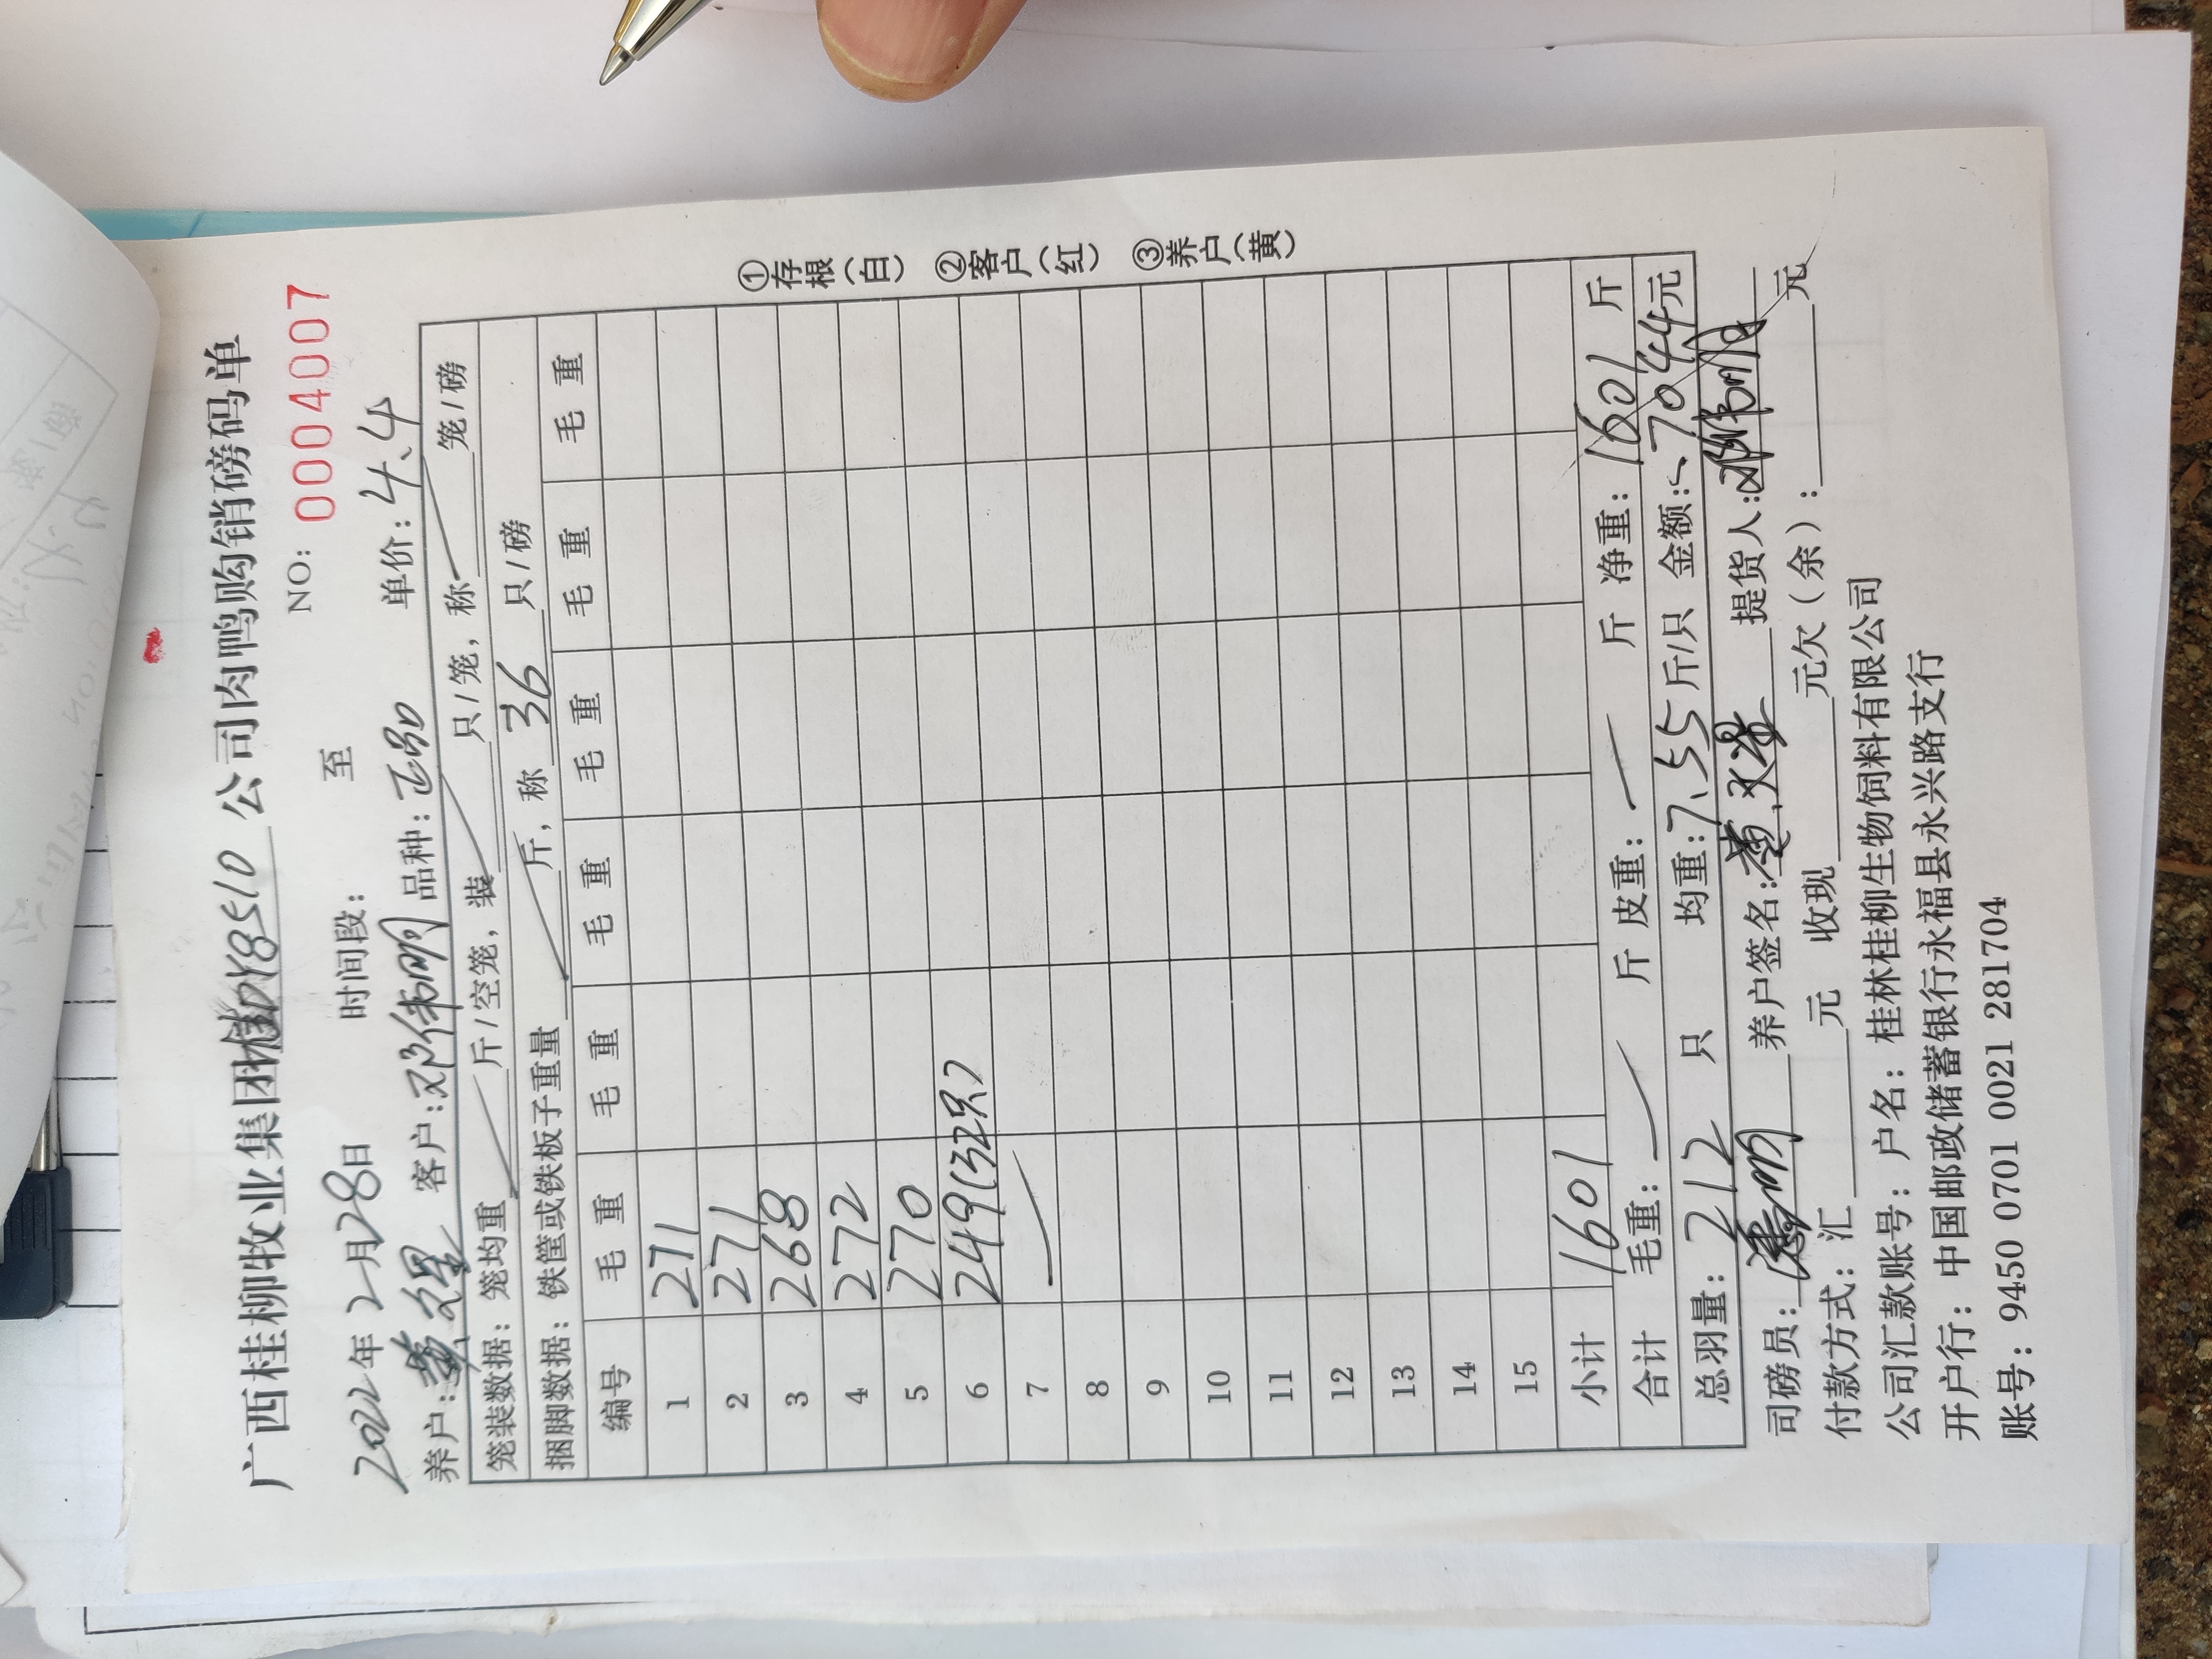 广西桂柳牧业集团 公司肉鸭购销磅码单
NO: 0004007
2022年2月28日 时间段: 至
养户: 客户:邓伟明 品种:正品 单价:4.4
笼装数据: 笼均重 斤/空笼, 装 只/笼, 称 笼/磅
捆脚数据: 铁筐或铁板子重量 斤, 称 36 只/磅
编号 毛重 毛重 毛重 毛重 毛重 毛重 毛重
1 271
2 271
3 268
4 272
5 270
6 249(32只)
7
8
9
10
11
12
13
14
15
小计 1601
合计 毛重: 斤 皮重: 斤 净重: 1601 斤
总羽量: 212 只 均重:7.55斤/只 金额: 7044元
司磅员: 养户签名: 提货人:邓伟明
付款方式: 汇 元 收现 元欠(余): 元
公司汇款账号: 户名: 桂林桂柳生物饲料有限公司
开户行: 中国邮政储蓄银行永福县永兴路支行
账号: 9450 0701 0021 281704
①存根(白) ②客户(红) ③养户(黄)